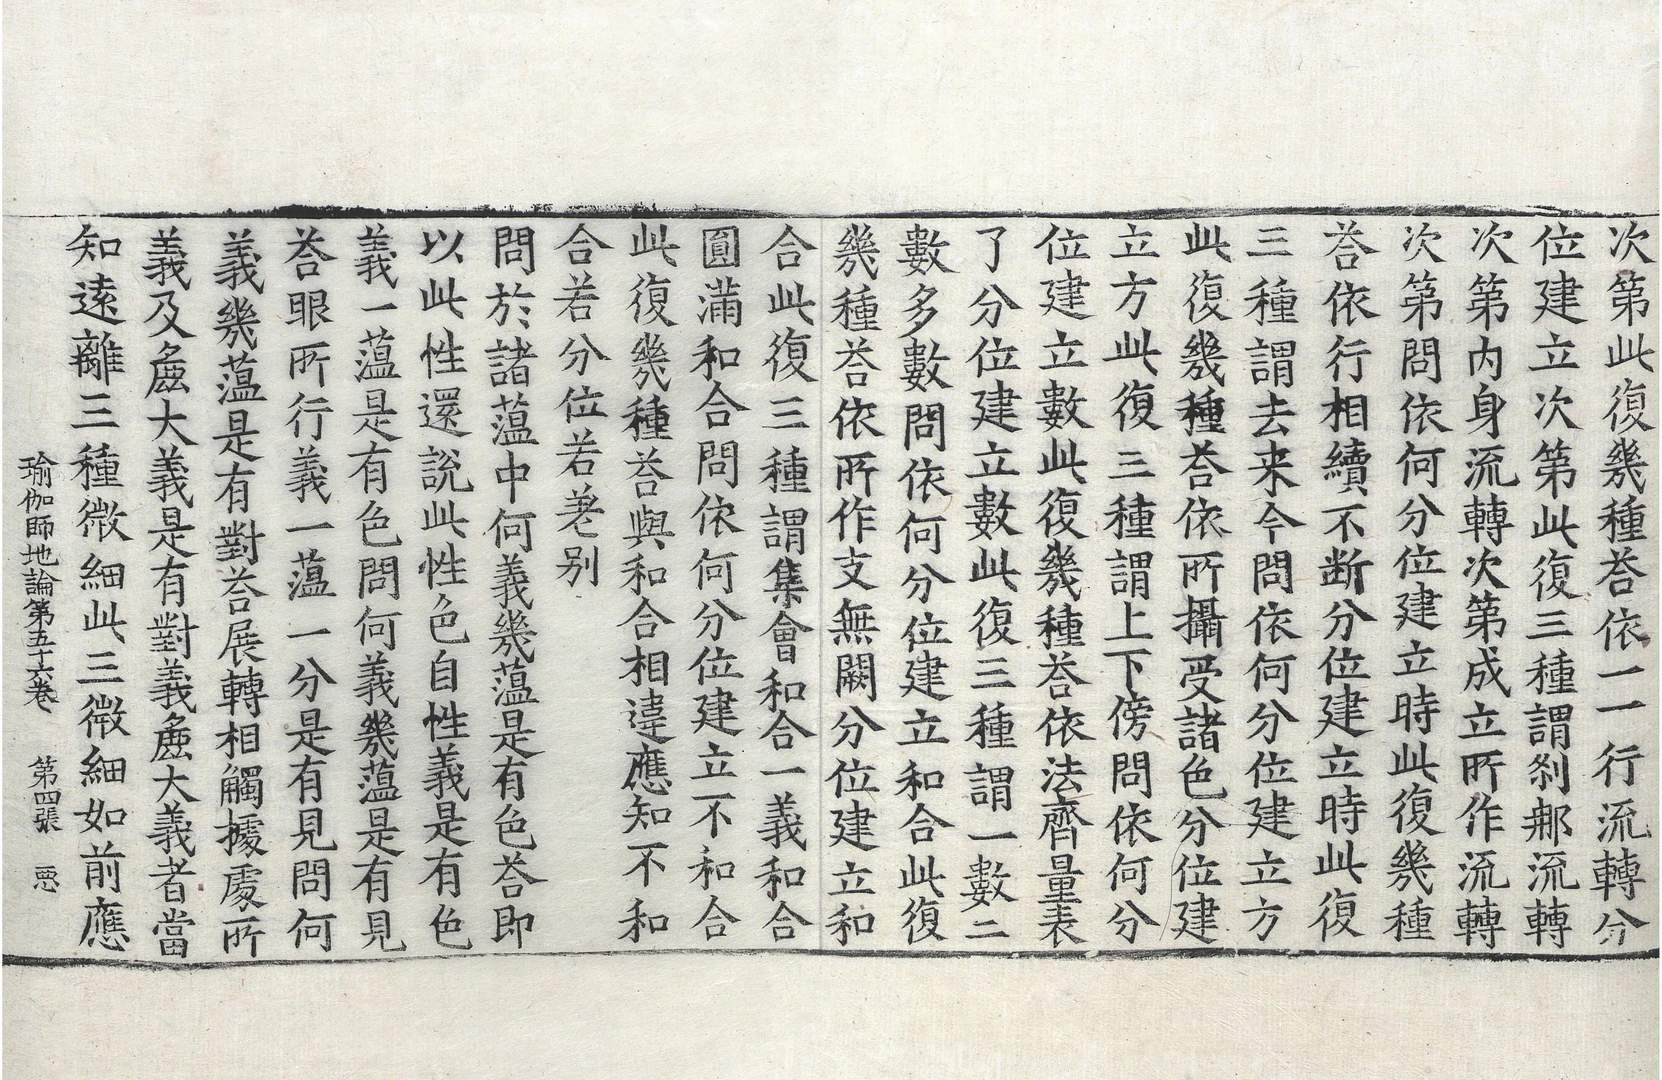 次第此復幾種荅依一一行流轉分
位建立次第此復三種謂刹那流轉
次第内身流轉次第成立所作流轉
次第問依何分位建立時此復幾種
荅依行相續不断分位建立時此復
三種謂去来今問依何分位建立方
此復幾種荅依所攝受諸色分位建
立方此復三種謂上下傍問依何分
位建立數此復幾種荅依法齊量表
了分位建立數此復三種謂一數二
數多數問依何分位建立和合此復
幾種荅依所作支無闕分位建立和
合此復三種謂集會和合一義和合
圓滿和合問依何分位建立不和合
此復幾種荅與和合相違應知不和
合若分位若差别
問於諸蕴中何義幾蕴是有色荅即
以此性還説此性色自性義是有色
義一蕴是有色問何義幾蕴是有見
荅眼所行義一蕴一分是有見問何
義幾蕴是有對荅展轉相觸據處所
義及麁大義是有對義麁大義者當
知遠離三種微細此三微細如前應
瑜伽師地論第五十六卷 第四張 惡